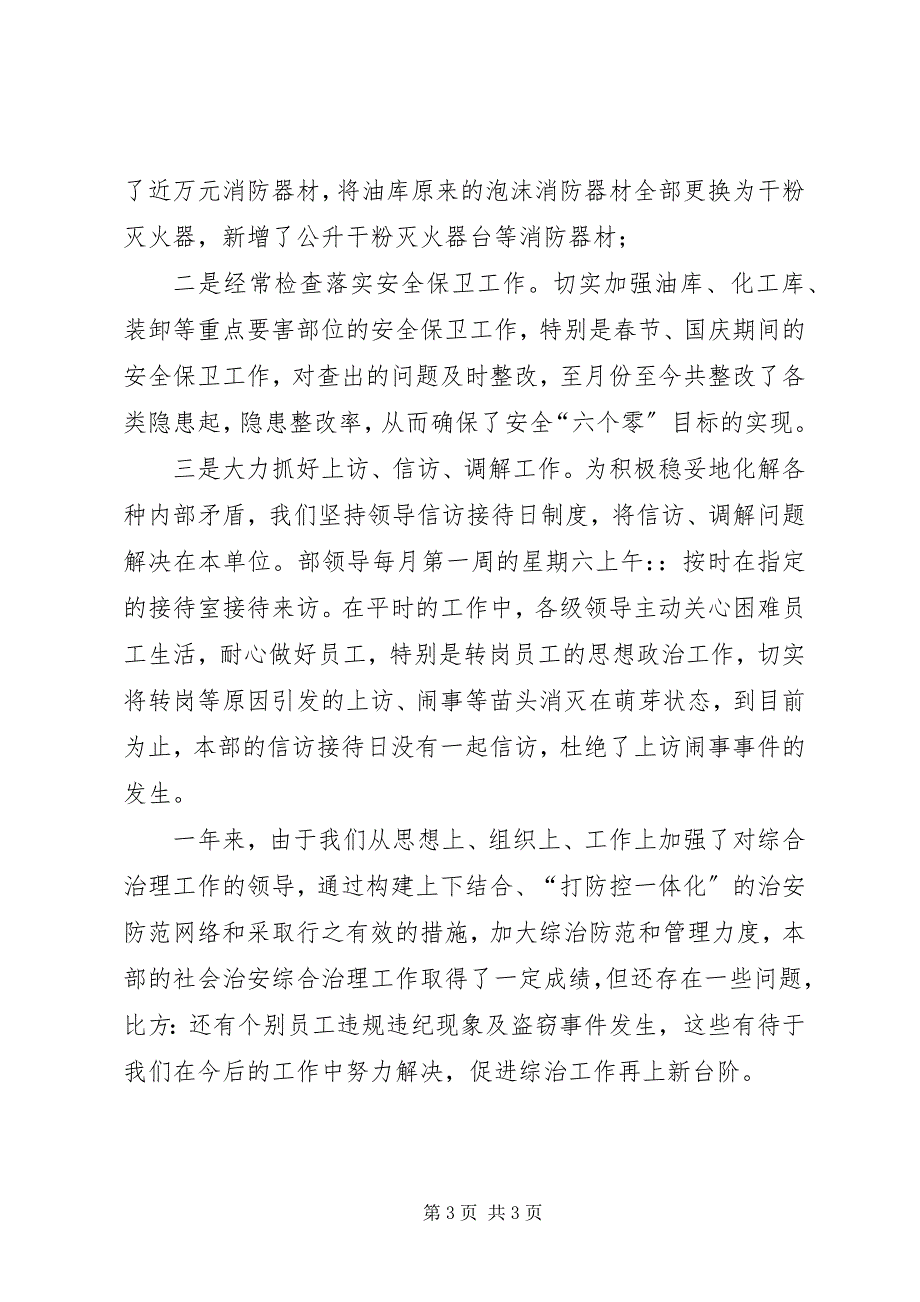 了近万元消防器材，将油库原来的泡沫消防器材全部更换为干粉
灭火器，新增了公升干粉灭火器台等消防器材；
二是经常检查落实安全保卫工作。切实加强油库、化工库、
装卸等重点要害部位的安全保卫工作，特别是春节、国庆期间的
安全保卫工作，对查出的问题及时整改，至月份至今共整改了各
类隐患起，隐患整改率，从而确保了安全“六个零〞目标的实现。
三是大力抓好上访、信访、调解工作。为积极稳妥地化解各
种内部矛盾，我们坚持领导信访接待日制度，将信访、调解问题
解决在本单位。部领导每月第一周的星期六上午：：按时在指定
的接待室接待来访。在平时的工作中，各级领导主动关心困难员
工生活，耐心做好员工，特别是转岗员工的思想政治工作，切实
将转岗等原因引发的上访、闹事等苗头消灭在萌芽状态，到目前
为止，本部的信访接待日没有一起信访，杜绝了上访闹事事件的
发生。
一年来，由于我们从思想上、组织上、工作上加强了对综合
治理工作的领导，通过构建上下结合、“打防控一体化〞的治安
防范网络和采取行之有效的措施，加大综治防范和管理力度，本
部的社会治安综合治理工作取得了一定成绩，但还存在一些问题，
比方：还有个别员工违规违纪现象及盗窃事件发生，这些有待于
我们在今后的工作中努力解决，促进综治工作再上新台阶。
第 3 页 共 3 页